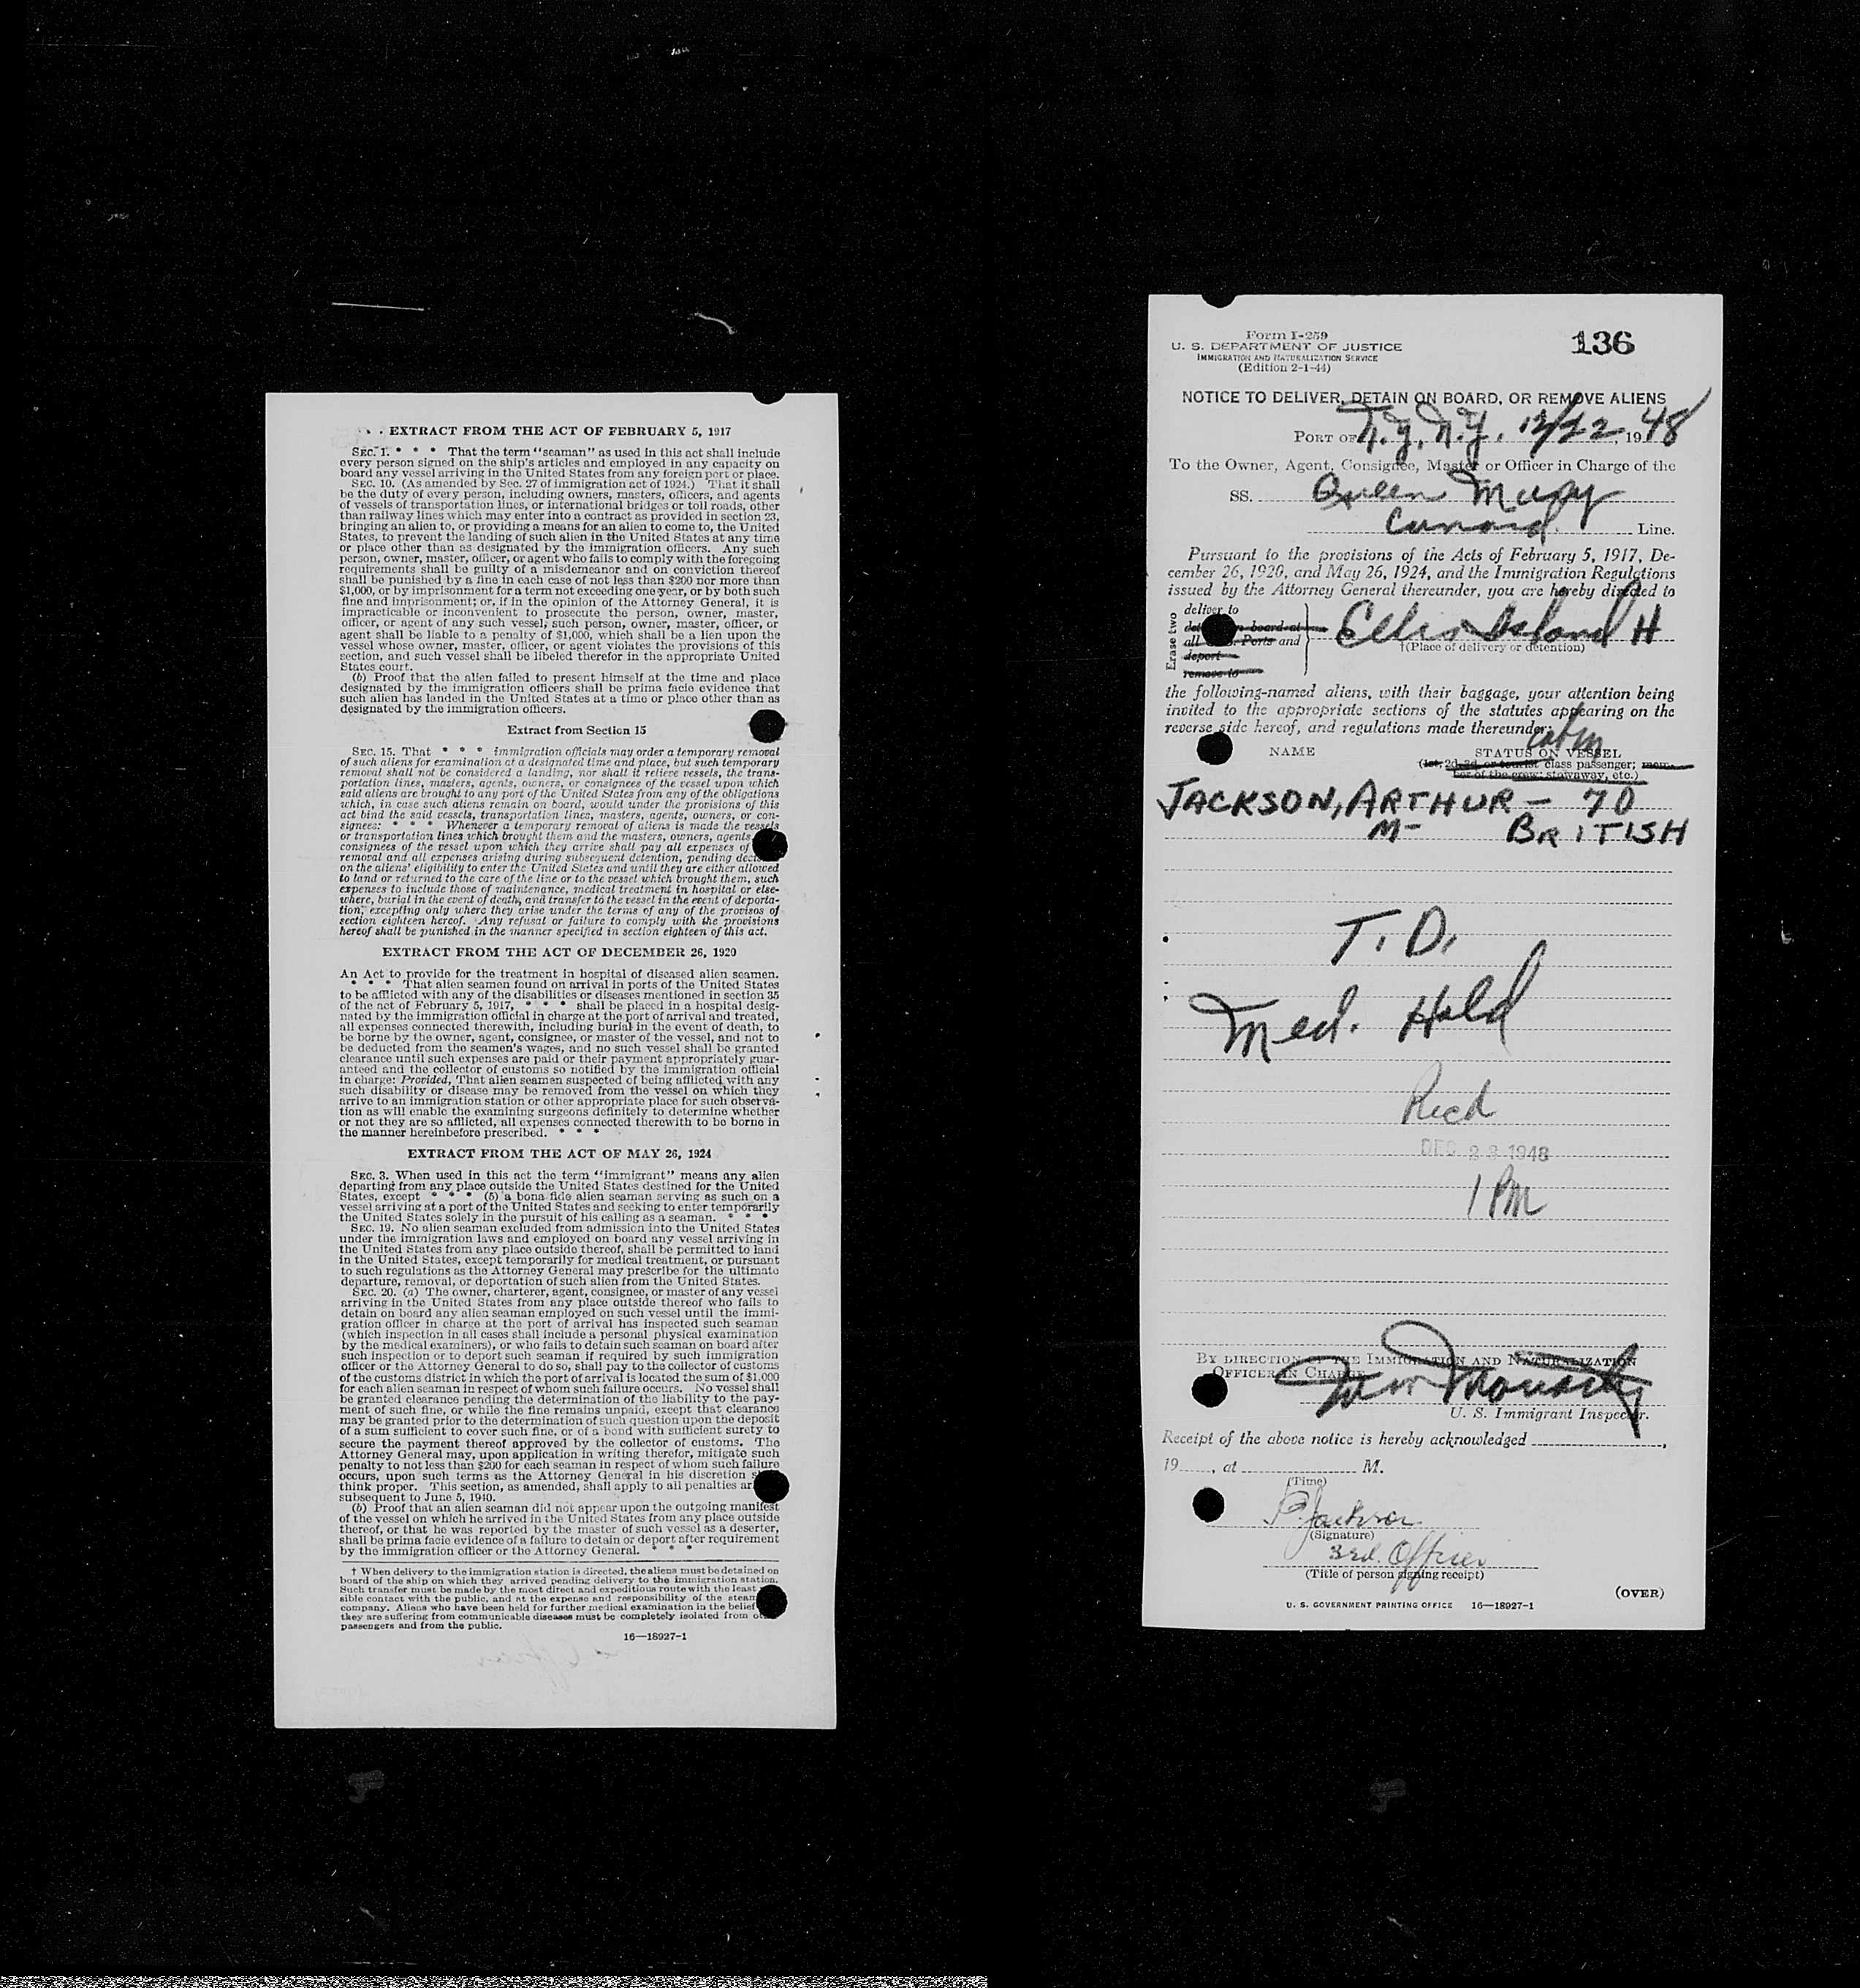 EXTRACT FROM THE ACT OF FEBRUARY 5, 1917
SEC. 1. * * * That the term "seaman" as used in this act shall include
every person signed on the ship's articles and employed in any capacity on
board any vessel arriving in the United States from any foreign port or place.
SEC. 10. (As amended by Sec. 27 of immigration act of 1924.) That it shall
be the duty of every person, including owners, masters, officers, and agents
of vessels of transportation lines, or international bridges or toll roads, other
than railway lines which may enter into a contract as provided in section 23,
bringing an alien to, or providing a means for an alien to come to, the United
States, to prevent the landing of such alien in the United States at any time
or place other than as designated by the immigration officers. Any such
person, owner, master, officer, or agent who fails to comply with the foregoing
requirements shall be guilty of a misdemeanor and on conviction thereof
shall be punished by a fine in each case of not less than $200 nor more than
$1,000, or by imprisonment for a term not exceeding one year, or by both such
fine and imprisonment; or, if in the opinion of the Attorney General, it is
impracticable or inconvenient to prosecute the person, owner, master,
officer, or agent of any such vessel, such person, owner, master, officer, or
agent shall be liable to a penalty of $1,000, which shall be a lien upon the
vessel whose owner, master, officer, or agent violates the provisions of this
section, and such vessel shall be libeled therefor in the appropriate United
States court.
(b) Proof that the alien failed to present himself at the time and place
designated by the immigration officers shall be prima facie evidence that
such alien has landed in the United States at a time or place other than as
designated by the immigration officers.
Extract from Section 15
SEC. 15. That * * * immigration officials may order a temporary removal
of such aliens for examination at a designated time and place, but such temporary
removal shall not be considered a landing, nor shall it relieve vessels, the trans-
portation lines, masters, agents, owners, or consignees of the vessel upon which
said aliens are brought to any port of the United States from any of the obligations
which, in case such aliens remain on board, would under the provisions of this
act bind the said vessels, transportation lines, masters, agents, owners, or con-
signees: * * * Whenever a temporary removal of aliens is made the vessels
or transportation lines which brought them and the masters, owners, agents,
consignees of the vessel upon which they arrive shall pay all expenses of
removal and all expenses arising during subsequent detention, pending
on the aliens' eligibility to enter the United States and until they are either allowed
to land or returned to the care of the line or to the vessel which brought them, such
expenses to include those of maintenance, medical treatment in hospital or else-
where, burial in the event of death, and transfer to the vessel in the event of deporta-
tion, excepting only where they arise under the terms of any of the provisos of
section eighteen hereof. Any refusal or failure to comply with the provisions
hereof shall be punished in the manner specified in section eighteen of this act.
EXTRACT FROM THE ACT OF DECEMBER 26, 1920
An Act to provide for the treatment in hospital of diseased alien seamen.
* * * That alien seamen found on arrival in ports of the United States
to be afflicted with any of the disabilities or diseases mentioned in section 35
of the act of February 5, 1917, * * * shall be placed in a hospital desig-
nated by the immigration official in charge at the port of arrival and treated,
all expenses connected therewith, including burial in the event of death, to
be borne by the owner, agent, consignee, or master of the vessel, and not to
be deducted from the seamen's wages, and no such vessel shall be granted
clearance until such expenses are paid or their payment appropriately guar-
anteed and the collector of customs so notified by the immigration official
in charge: Provided, That alien seamen suspected of being afflicted with any
such disability or disease may be removed from the vessel on which they
arrive to an immigration station or other appropriate place for such observa-
tion as will enable the examining surgeons definitely to determine whether
or not they are so afflicted, all expenses connected therewith to be borne in
the manner hereinbefore prescribed. * * *
EXTRACT FROM THE ACT OF MAY 26, 1924
SEC. 3. When used in this act the term "immigrant" means any alien
departing from any place outside the United States destined for the United
States, except * * * (5) a bona fide alien seaman serving as such on a
vessel arriving at a port of the United States and seeking to enter temporarily
the United States solely in the pursuit of his calling as a seaman. * * *
SEC. 19. No alien seaman excluded from admission into the United States
under the immigration laws and employed on board any vessel arriving in
the United States from any place outside thereof, shall be permitted to land
in the United States, except temporarily for medical treatment, or pursuant
to such regulations as the Attorney General may prescribe for the ultimate
departure, removal, or deportation of such alien from the United States.
SEC. 20. (a) The owner, charterer, agent, consignee, or master of any vessel
arriving in the United States from any place outside thereof who fails to
detain on board any alien seaman employed on such vessel until the immi-
gration officer in charge at the port of arrival has inspected such seaman
(which inspection in all cases shall include a personal physical examination
by the medical examiners), or who fails to detain such seaman on board after
such inspection or to deport such seaman if required by such immigration
officer or the Attorney General to do so, shall pay to the collector of customs
of the customs district in which the port of arrival is located the sum of $1,000
for each alien seaman in respect of whom such failure occurs. No vessel shall
be granted clearance pending the determination of the liability to the pay-
ment of such fine, or while the fine remains unpaid, except that clearance
may be granted prior to the determination of such question upon the deposit
of a sum sufficient to cover such fine, or of a bond with sufficient surety to
secure the payment thereof approved by the collector of customs. The
Attorney General may, upon application in writing therefor, mitigate such
penalty to not less than $200 for each seaman in respect of whom such failure
occurs, upon such terms as the Attorney General in his discretion
think proper. This section, as amended, shall apply to all penalties
subsequent to June 5, 1940.
(b) Proof that an alien seaman did not appear upon the outgoing manifest
of the vessel on which he arrived in the United States from any place outside
thereof, or that he was reported by the master of such vessel as a deserter,
shall be prima facie evidence of a failure to detain or deport after requirement
by the immigration officer or the Attorney General. * * *
† When delivery to the immigration station is directed, the aliens must be detained on
board of the ship on which they arrived pending delivery to the immigration station.
Such transfer must be made by the most direct and expeditious route with the least
sible contact with the public, and at the expense and responsibility of the steam
company. Aliens who have been held for further medical examination in the belief
they are suffering from communicable diseases must be completely isolated from
passengers and from the public.
16—18927-1
Form I-259
U. S. DEPARTMENT OF JUSTICE
IMMIGRATION AND NATURALIZATION SERVICE
(Edition 2-1-44)
136
NOTICE TO DELIVER, DETAIN ON BOARD, OR REMOVE ALIENS
PORT OF N.Y, N.Y. 12/22, 1948
To the Owner, Agent, Consignee, Master or Officer in Charge of the
SS. Queen Mary
Cunard Line.
Pursuant to the provisions of the Acts of February 5, 1917, De-
cember 26, 1920, and May 26, 1924, and the Immigration Regulations
issued by the Attorney General thereunder, you are hereby directed to
Erase two
deliver to
board at
all Ports and
deport
remove to
Ellis Island H
†(Place of delivery or detention)
the following-named aliens, with their baggage, your attention being
invited to the appropriate sections of the statutes appearing on the
reverse side hereof, and regulations made thereunder:
cabin
NAME STATUS ON VESSEL
(1st, 2d, 3d, or tourist class passenger; mem-
ber of the crew; stowaway, etc.)
JACKSON, ARTHUR — 70
M- BRITISH
T. D.
Med. Hold
Recd
DEC 23 1948
1 PM
BY DIRECTION OF THE IMMIGRATION AND NATURALIZATION
OFFICER IN CHARGE
U. S. Immigrant Inspector.
Receipt of the above notice is hereby acknowledged
19 , at M.
(Time)
Jackson
(Signature)
3rd. Officer
(Title of person signing receipt)
U. S. GOVERNMENT PRINTING OFFICE 16—18927-1
(OVER)